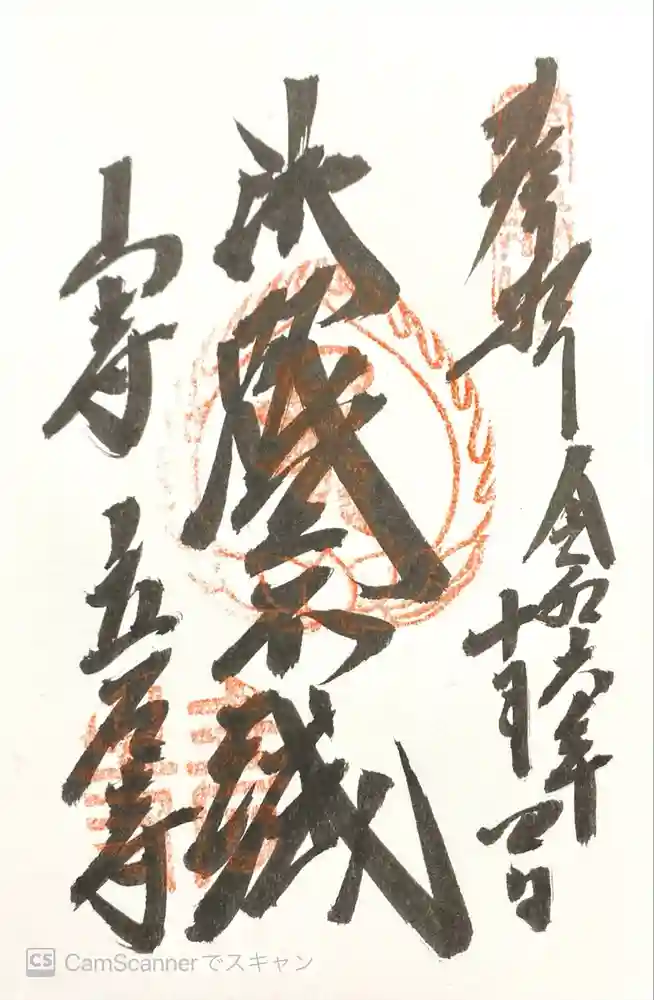 奉拝
令和六年
十月四日
法燈不滅
山寺
立石寺
CS CamScannerでスキャン